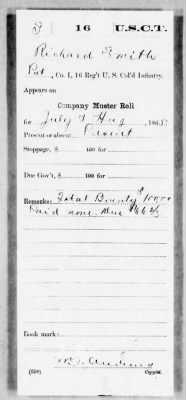 S | 16 | U.S.C.T.
Richard Smith
Pvt, Co. I, 16 Reg't U. S. Col'd Infantry.
Appears on
Company Muster Roll
for July & Aug, 1865
Present or absent Present
Stoppage, $ 100 for
Due Gov't, $ 100 for
Remarks: Total Bounty $100.00
Paid none. Due $66 2/3
Book mark:
(358) Copyist.